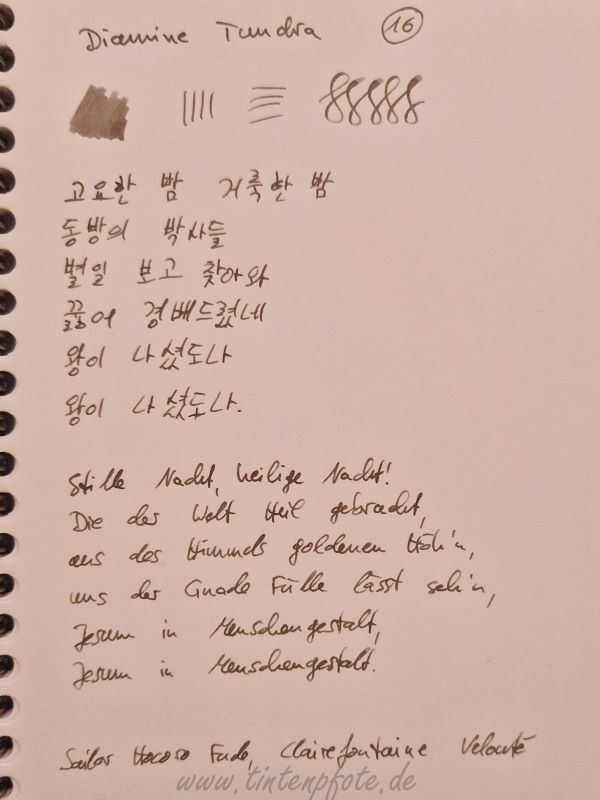 Diamine Tundra 16
고요한 밤 거룩한 밤
동방의 박사들
별일 보고 찾아와
꿇어 경배드렸네
왕이 나셨도나
왕이 나셨도나.
Stille Nacht, heilige Nacht!
Die der Welt Heil gebracht,
aus des Himmels goldenen Höh'n,
uns der Gnade Fülle lässt seh'n,
Jesum in Menschengestalt,
Jesum in Menschengestalt.
Sailor Hocoro Fude, Clairefontaine Velouté
www.tintenpfote.de